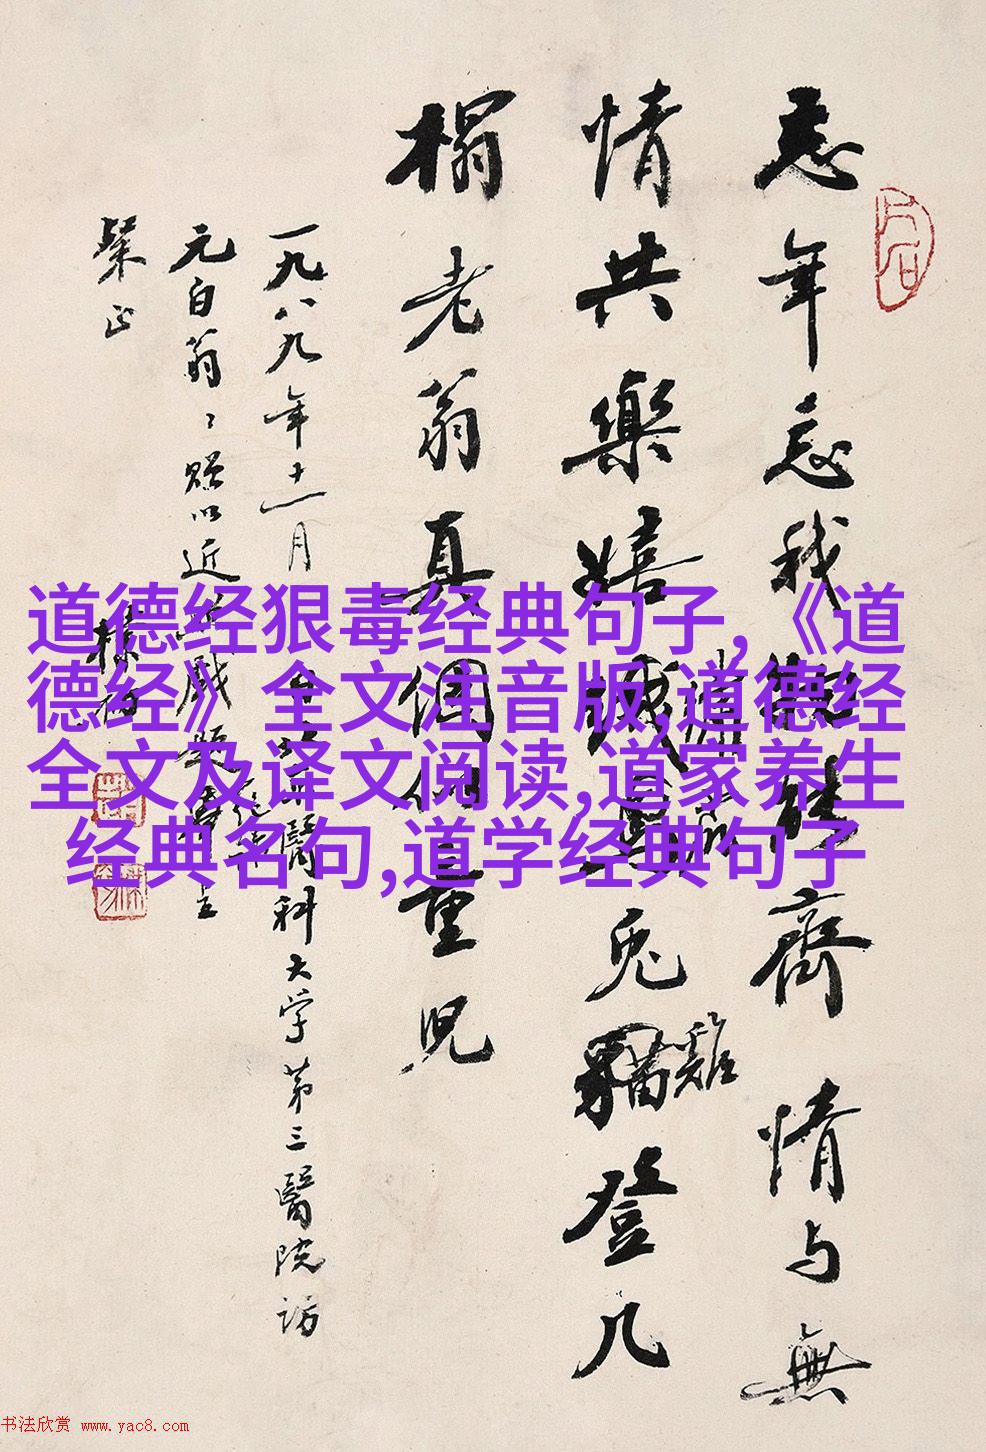 忘年忘我能齊情与無
情共樂嬉兎貓登几
鷄
榻老翁真個兒
一九八九年十一月醫科大学第三醫院訪
元白翁〻贈以近戲題
粲正
道德经狠毒经典句子,《道
德经》全文注音版,道德经
全文及译文阅读,道家养生
经典名句,道学经典句子
书法欣赏 www.yac8.com